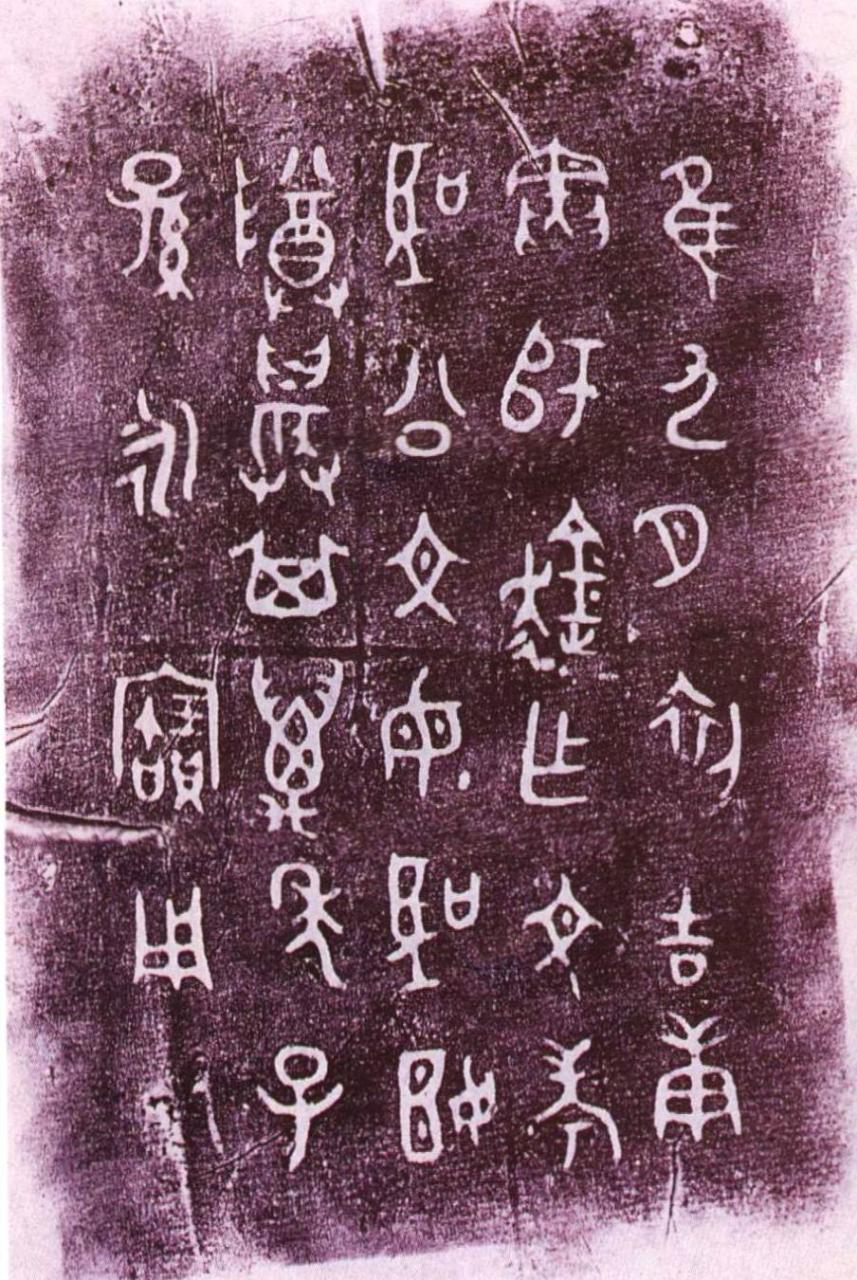 隹九月初吉庚
寅師趛乍文考
聖公文母聖姬
尊其萬年子
孫永寶用